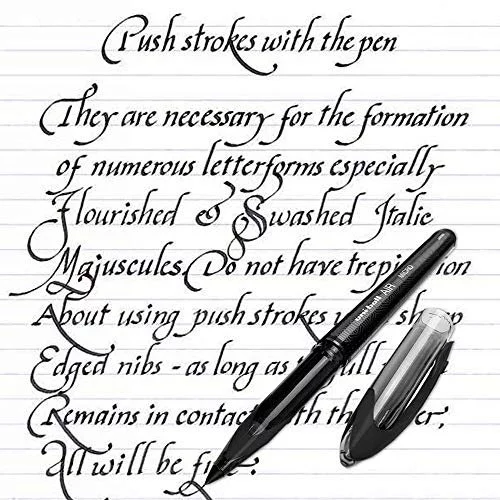 Push strokes with the pen
They are necessary for the formation
of numerous letterforms especially
Flourished & Swashed Italic
Majuscules. Do not have trepi
About using push strokes
Edged nibs - as long as full
Remains in contact the
All will be
uni-ball AIR MICRO